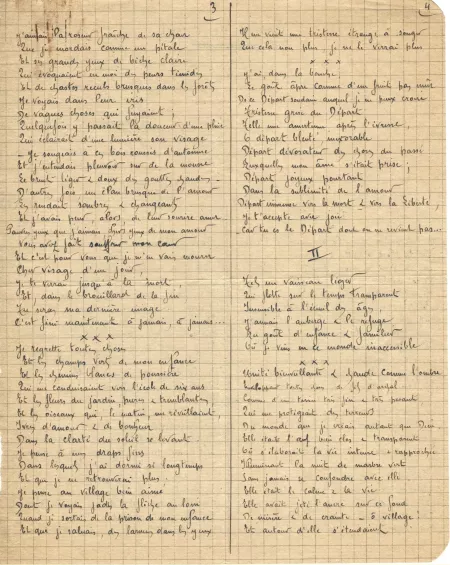 3
J'aimais l'atroceur fraîche de sa chair
Que je mordais comme un pétale
Et ses grands yeux de biche claire
Qui évoquaient en moi des peurs timides
Et de chastes reculs brusques dans les forêts
Je voyais dans leur iris
De vagues choses qui fuyaient ;
Quelquefois y passait la douceur d'une pluie
Qui éclairait d'une lumière son visage
Je songeais à ces bois couverts d'automne
Et j'entendais pleuvoir sur de la mousse
Le bruit léger & doux des gouttes
D'autres fois un élan brusque de l'amour
Les rendait sombres & changeants
Et j'avais peur, alors, de leur
yeux de mon amour
Vous avez fait souffrir mon cœur
Et c'est pour vous que je m'en vais mourir
Cher visage d'un jour,
Je te verrai jusqu'à la mort,
Et, dans le brouillard de la fin
Tu seras ma dernière image
C'est fini maintenant à jamais, à jamais...
x x x
Je regrette toutes choses
Et les champs verts de mon enfance
Et les chemins blancs de poussière
Qui me conduisaient vers l'école de six ans
Et les fleurs du jardin, pures & tremblantes
Et les oiseaux qui, le matin, me réveillaient
Ivres d'amour & de bonheur
Dans la clarté du soleil se levant
Je pense à mes draps fins
Dans lesquels j'ai dormi si longtemps
Et que je ne retrouverai plus ;
Je pense au village bien aimé
Dont je voyais jadis la flèche au loin
Quand je sortais de la prison de mon enfance
Et que je saluais, des larmes dans les yeux
4
Il me vient une tristesse étrange à songer
Que cela non plus je ne le verrai plus
x x x
J'ai, dans la bouche
Le goût âpre comme d'un fruit pas mûr
De ce Départ soudain auquel je ne peux croire
Tristesse grise du Départ
Telle une amertume après l'ivresse,
Le départ bleuté, inexorable
Départ dévorateur des choses du passé
Auxquelles mon âme s'était prise ;
Départ joyeux pourtant
Dans la sublimité de l'amour
Départ immense vers la mort & vers la Liberté,
Je t'accepte avec joie
Car tu es le Départ dont on ne revient pas...
II
Tel, un vaisseau léger
Qui flotte sur le temps transparent
Immobile à l'seuil des âges
J'aimais l'auberge & le refuge
Au goût d'enfance & familier
Où je vins en ce monde inaccessible
x x x
Unité bienveillante & chaude comme l'ombre
Comme d'un tissu très fin & très puissant
Qui me protégeait des terreurs
Du monde que je vivais autant que Dieu
Elle était l'œuf bien clos & transparent
Où s'élaborait la vie intense & rapprochée
Illuminant la nuit de marbre vert
Sans jamais se confondre avec elle
Elle était le calme & la vie
Elle avait jeté l'ancre sur ce fond
De misère & de crainte — ô village !
Et autour d'elle s'étendaient